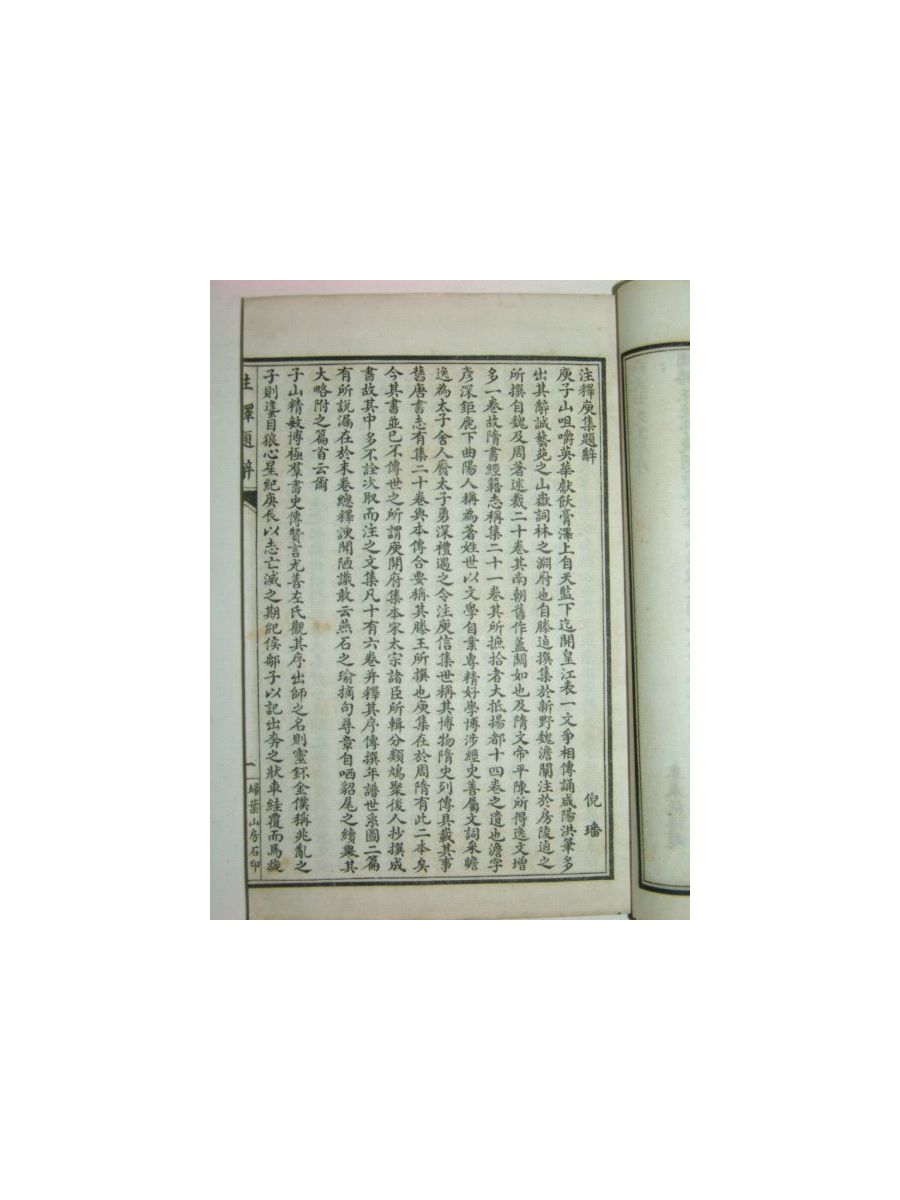 注釋庾集題辭
倪璠
庾子山咀嚼英華猒飫膏澤上自天監下迄開皇江表一文爭相傳誦咸陽洪筆多
出其辭誠藝苑之山嶽詞林之淵府也自滕逌撰集於新野魏澹闡注於房陵逌之
所撰自魏及周著述裁二十卷其南朝舊作蓋闕如也及隋文帝平陳所得逸文增
多一卷故隋書經籍志稱集二十一卷其所摭拾者大抵揚都十四卷之遺也澹字
彦深鉅鹿下曲陽人稱為著姓世以文學自業專精好學博涉經史善屬文詞采瞻
逸為太子舍人廢太子勇深禮遇之令注庾信集世稱其博物隋史列傳具載其事
舊唐書志有集二十卷與本傳合要稱其滕王所撰也庾集在於周隋有此二本矣
今其書並已不傳世之所謂庾開府集本宋太宗諸臣所輯分類鳩聚後人抄撰成
書故其中多不詮次取而注之文集凡十有六卷并釋其序傳撰年譜世系圖二篇
有所說漏在於末卷總釋謏聞陋識敢云燕石之瑜摘句尋章自哂貂尾之續與其
大略附之篇首云爾
子山精敏博極羣書史傳贊言尤善左氏觀其序出師之名則靈鈈金僕稱兆亂之
子則蠭目狼心星紀庚長以志亡滅之期紀侯鄅子以記出奔之狀車絓覆而馬旋
注釋題辭
一
埽葉山房石印